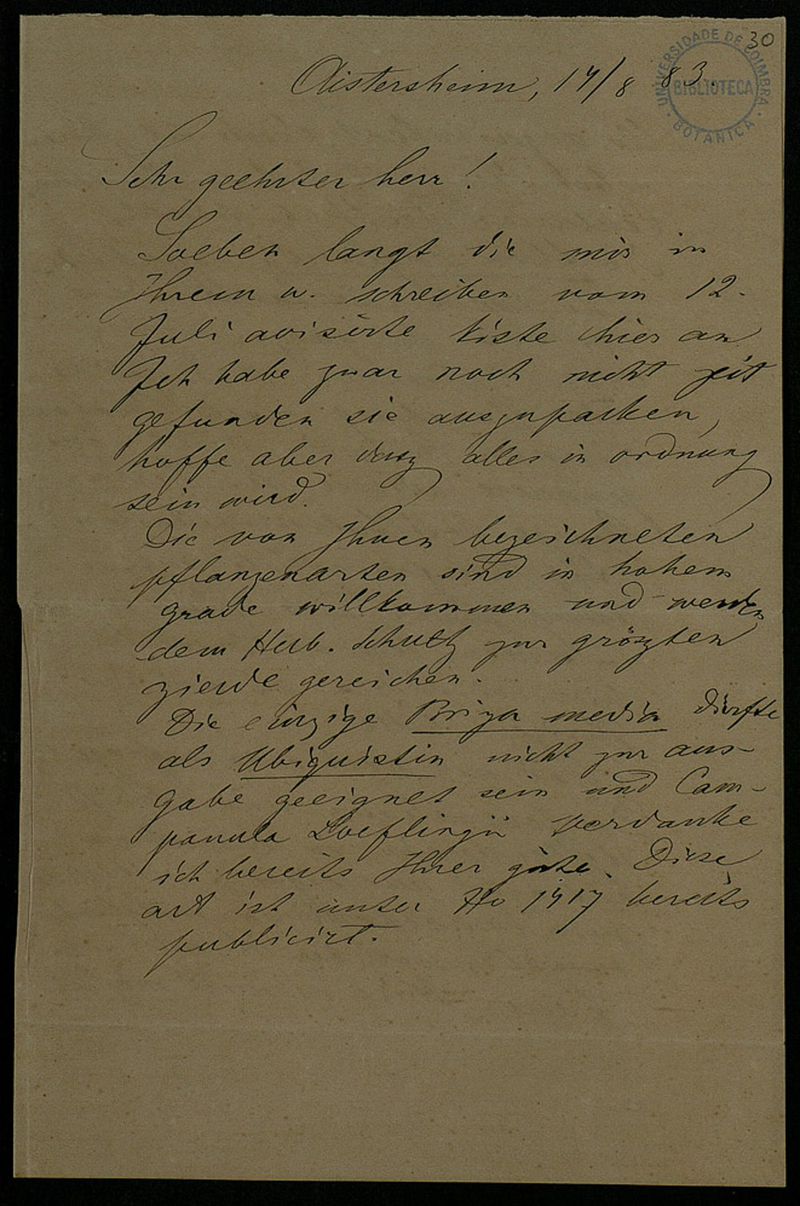 30
UNIVERSIDADE DE COIMBRA
BIBLIOTECA
BOTANICA
Aistersheim, 14/8 83.
Sehr geehrter herr!
Soeben langt die mir in
Ihrem w. schreiben vom 12.
Juli avisirte kiste hier an
Ich habe zwar noch nicht zeit
gefunden sie auszupacken,
hoffe aber dasz alles in ordnung
sein wird.
Die von Ihnen bezeichneten
pflanzenarten sind in hohem
grade willkommen und werden
dem Herb. Schultz zur gröszten
zierde gereichen.
Die einzige Briza media dürfte
als Ubiquistin nicht zur aus-
gabe geeignet sein und Cam-
panula Loeflingii verdanke
ich bereits Ihrer güte. Diese
art ist unter No 1417 bereits
publicirt.